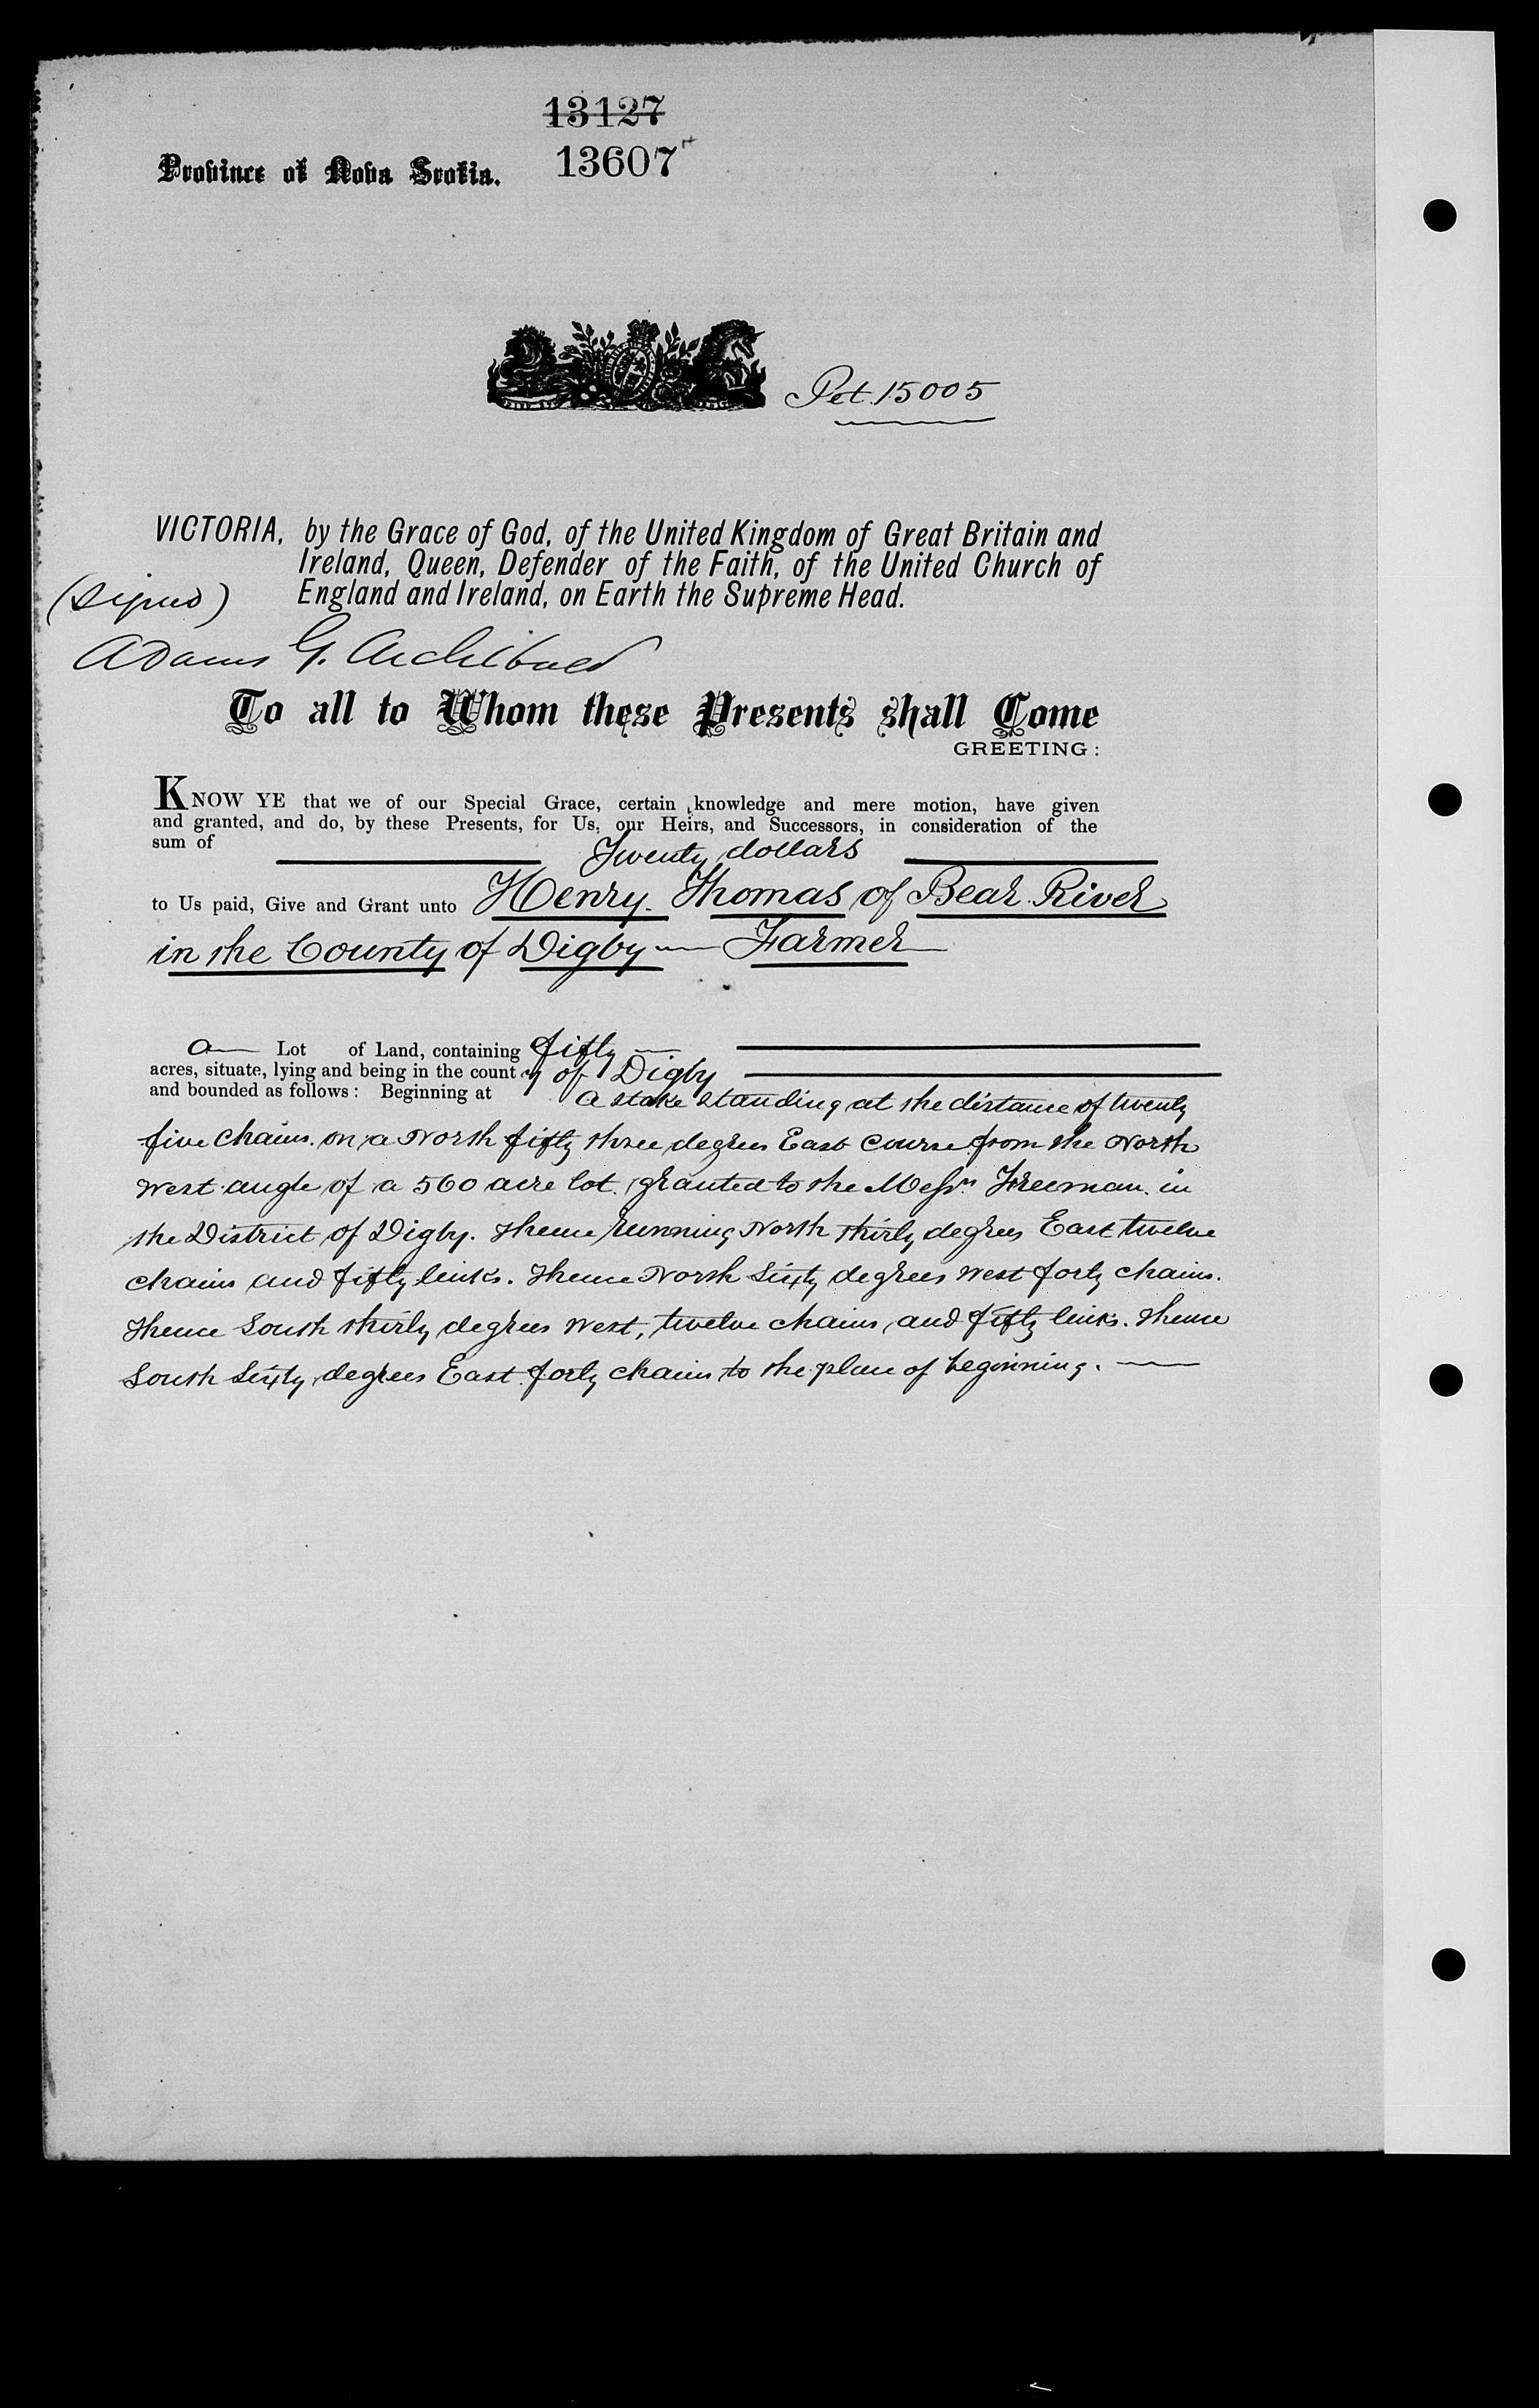 13127
Province of Nova Scotia. 13607
Pet. 15005
VICTORIA, by the Grace of God, of the United Kingdom of Great Britain and
Ireland, Queen, Defender of the Faith, of the United Church of
England and Ireland, on Earth the Supreme Head.
(Signed)
Adams G. Archibald
To all to Whom these Presents shall Come
GREETING:
KNOW YE that we of our Special Grace, certain knowledge and mere motion, have given
and granted, and do, by these Presents, for Us, our Heirs, and Successors, in consideration of the
sum of Twenty dollars
to Us paid, Give and Grant unto Henry Thomas of Bear River
in the County of Digby — Farmer
a — Lot of Land, containing fifty —
acres, situate, lying and being in the county of Digby
and bounded as follows: Beginning at a stake standing at the distance of twenty
five Chains. on a North fifty three degrees East Course from the North
West angle of a 560 acre lot. granted to the Messrs. Freeman. in
the District of Digby. Thence running North thirty degrees East twelve
chains and fifty links. Thence North Sixty degrees West forty chains.
Thence South thirty degrees West, twelve chains and fifty links. Thence
South Sixty degrees East forty chains to the place of beginning. —